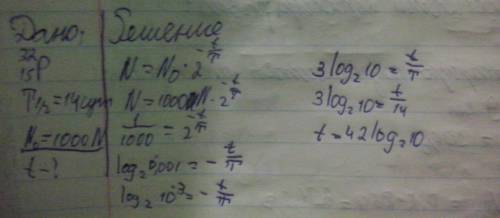 Дано:
³²₁₅P
T₁/₂ = 14сут
N₀ = 1000 N
t - ?
Решение
N = N₀ · 2^(-t/T)
N = 1000N · 2^(-t/T)
1/1000 = 2^(-t/T)
log₂ 0,001 = - t/T
log₂ 10⁻³ = - t/T
3 log₂ 10 = t/T
3 log₂ 10 = t/14
t = 42 log₂ 10